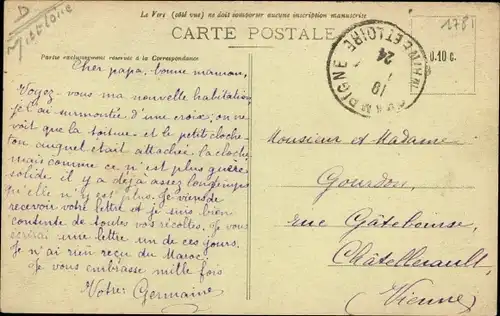 Le Vers (côté vue) ne doit comporter aucune inscription manuscrite
CARTE POSTALE
Partie exclusivement réservée à la Correspondance
1781
0.10 c.
CHAMPIGNE
MAINE ET LOIRE
24
Cher papa, bonne maman,
Voyez-vous ma nouvelle habitation
je l'ai surmontée d'une croix; on ne
voit que la toiture et le petit cloche
ton auquel était attachée la cloche
mais comme ce n'est plus guère
solide il y a déjà assez longtemps
qu'elle n'y est plus. Je viens de
recevoir votre lettre et je suis bien
contente de toutes vos récoltes. Je vous
écrirai une lettre un de ces jours.
Je n'ai rien reçu du Maroc.
Je vous embrasse mille fois
Votre Germaine
Monsieur et Madame
Gourdon,
rue Gâtebourse,
Châtellerault,
(Vienne)